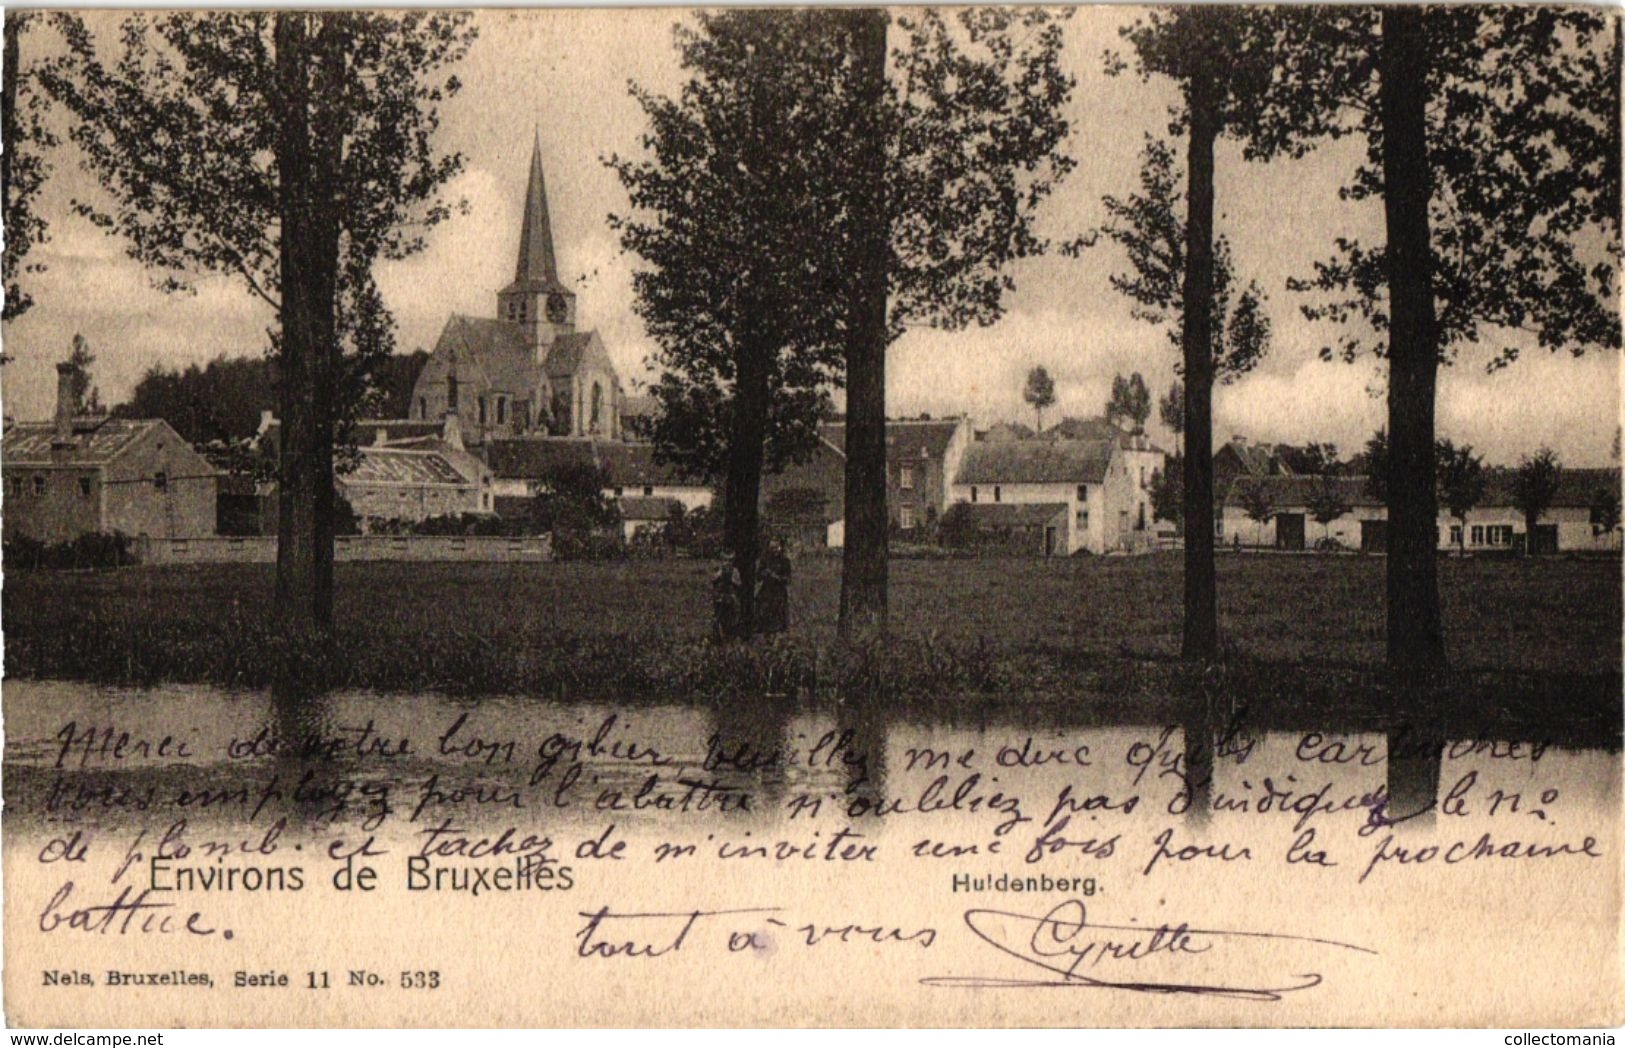 Merci de votre bon gibier, veuillez me dire quels cartouches
vous employez pour l'abattre n'oubliez pas d'indiquer le nº
de plomb. et tachez de m'inviter une fois pour la prochaine
Environs de Bruxelles
Huldenberg.
battue.
tout à vous Cyrille
Nels, Bruxelles, Serie 11 No. 533
delcampe.net
collectomania